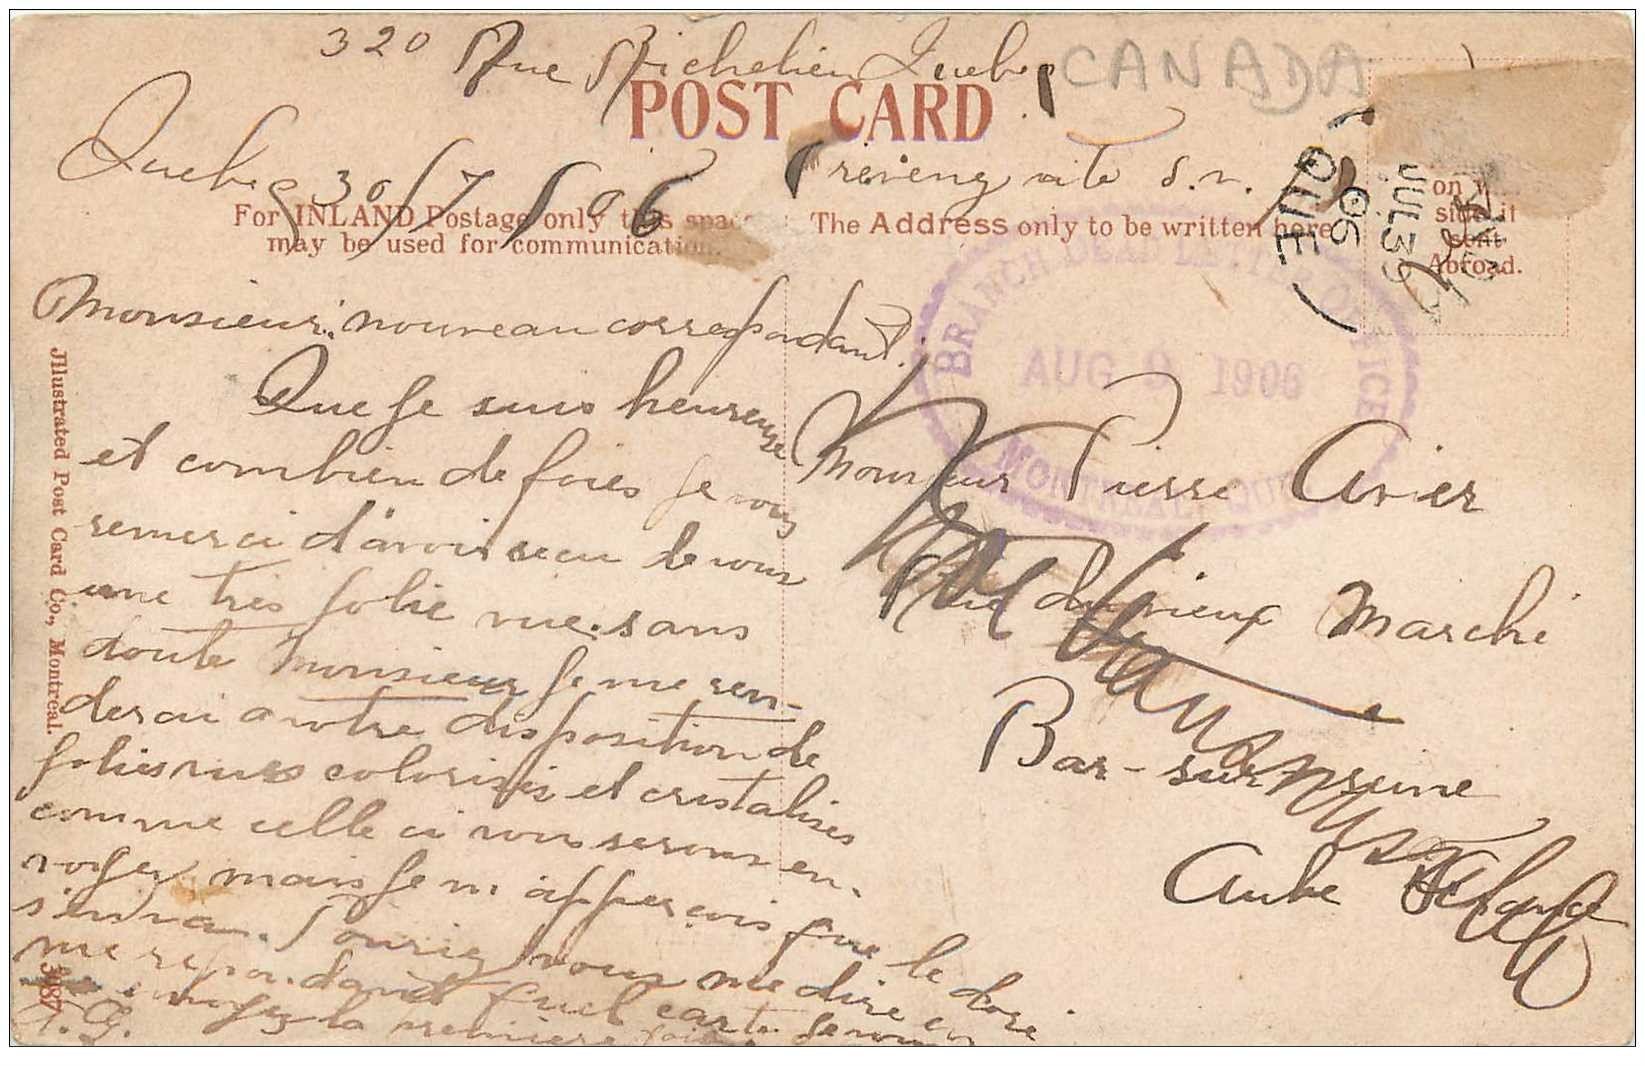 320 Rue Richelieu Quebec
CANADA
POST CARD
Quebec 30/7/06
revenez vite s.v.
For INLAND Postage only this space
may be used for communication.
The Address only to be written here
on
side it
sent
Abroad.
QUE
JUL 30
06
BRANCH DEAD LETTER OFFICE
AUG 9 1906
MONTREAL, QUE
Monsieur nouveau correspondant.
Que je suis heureuse
et combien de foies je vous
remerci d'avoir recu de vous
une très jolie vue. sans
doute Monsieur je me ren-
derai a votre disposition de
jolies vues colorisés et cristalisés
comme celle ci vous serons en-
voyer mais je m'apperçois que le doré
s'enva. Pouriez vous me dire en
me repondant quel carte
envoyez la premiere fois
Monsieur Pierre Avier
Rue du vieux Marché
Bar-sur-seine
Aube
Jllustrated Post Card Co., Montreal.
3087